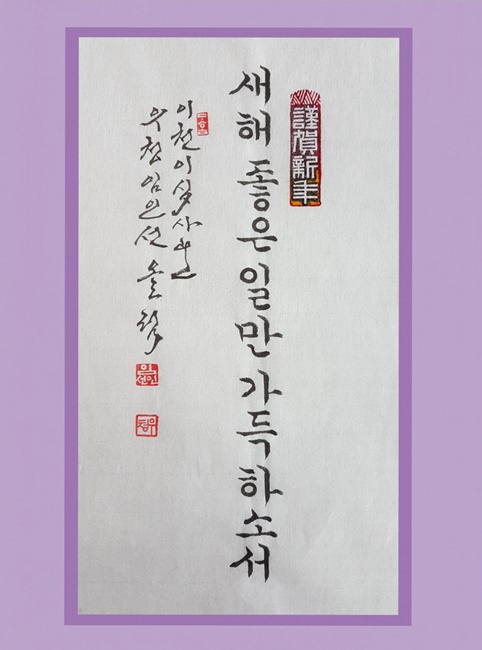 謹賀新年
새해 좋은 일만 가득하소서
이천이십사년
우청 임인선